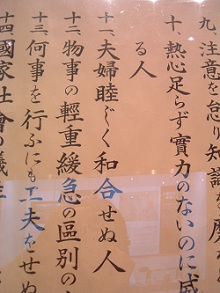 九、注意を怠り知識を磨
十、熱心足らず實力のないのに威
る人
十一、夫婦睦じく和合せぬ人
十二、物事の輕重緩急の區別の
十三、何事を行ふにも工夫をせぬ
十四國家社會の義